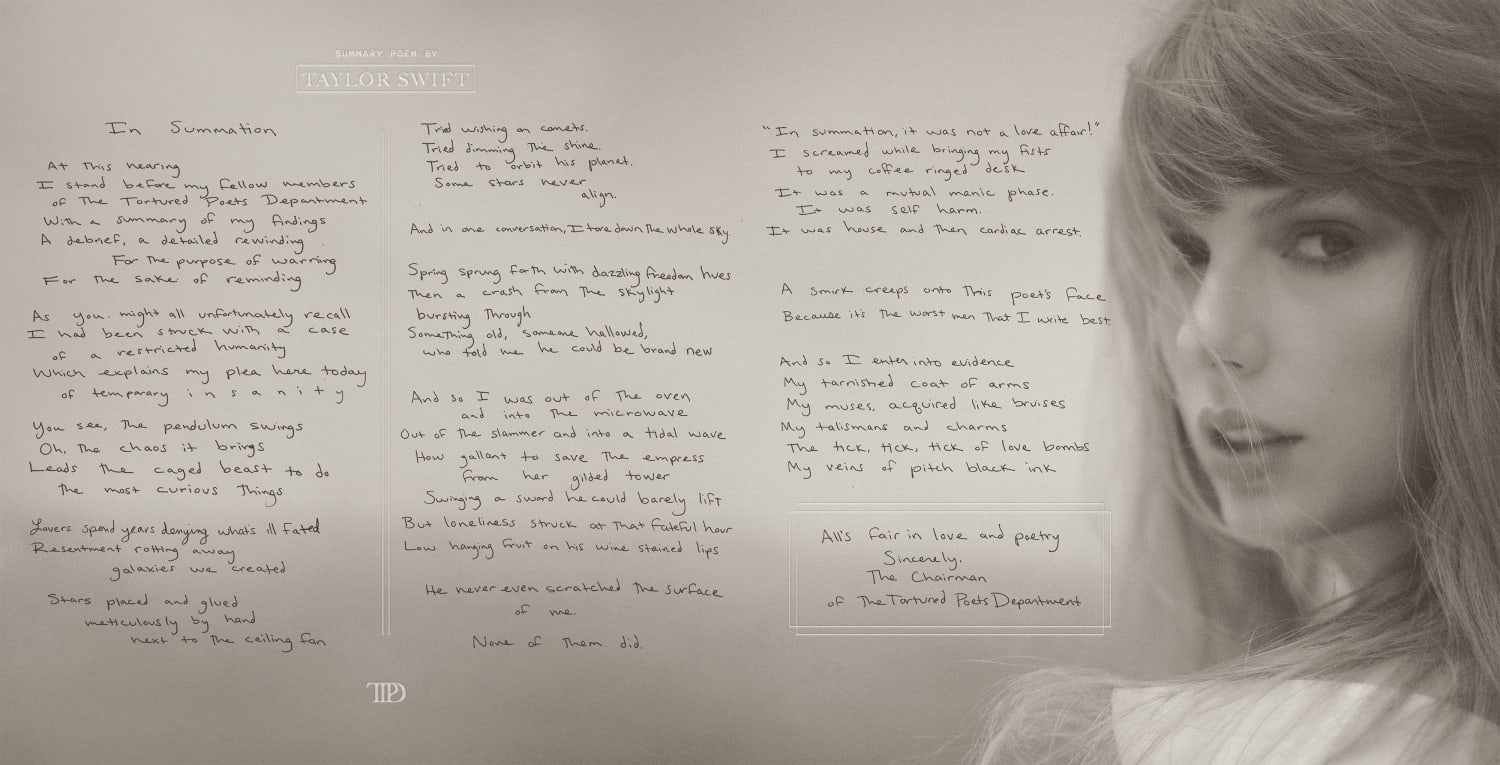 SUMMARY POEM BY
TAYLOR SWIFT
In Summation
At this hearing
I stand before my fellow members
of The Tortured Poets Department
With a summary of my findings
A debrief, a detailed rewinding
For the purpose of warning
For the sake of reminding
As you might all unfortunately recall
I had been struck with a case
of a restricted humanity
Which explains my plea here today
of temporary i n s a n i t y
You see, The pendulum swings
Oh, The chaos it brings
Leads the caged beast to do
The most curious Things
Lovers spend years denying what's ill fated
Resentment rotting away
galaxies we created
Stars placed and glued
meticulously by hand
next to the ceiling fan
Tried wishing on comets.
Tried dimming The shine.
Tried to orbit his planet.
Some stars never
align.
And in one conversation, I tore down The whole sky.
Spring sprung forth with dazzling freedom hues
Then a crash from The skylight
bursting Through
Something old, someone hallowed,
who told me he could be brand new
And so I was out of The oven
and into The microwave
Out of The slammer and into a tidal wave
How gallant to save The empress
from her gilded tower
Swinging a sword he could barely lift
But loneliness struck at That fateful hour
Low hanging fruit on his wine stained lips
He never even scratched The surface
of me.
None of Them did.
"In summation, it was not a love affair!"
I screamed while bringing my fists
to my coffee ringed desk
It was a mutual manic phase.
It was self harm.
It was house and Then cardiac arrest.
A smirk creeps onto This poet's face
Because it's The worst men That I write best.
And so I enter into evidence
My tarnished coat of arms
My muses, acquired like bruises
My talismans and charms
The tick, tick, tick of love bombs
My veins of pitch black ink
All's fair in love and poetry
Sincerely,
The Chairman
of The Tortured Poets Department
TTPD